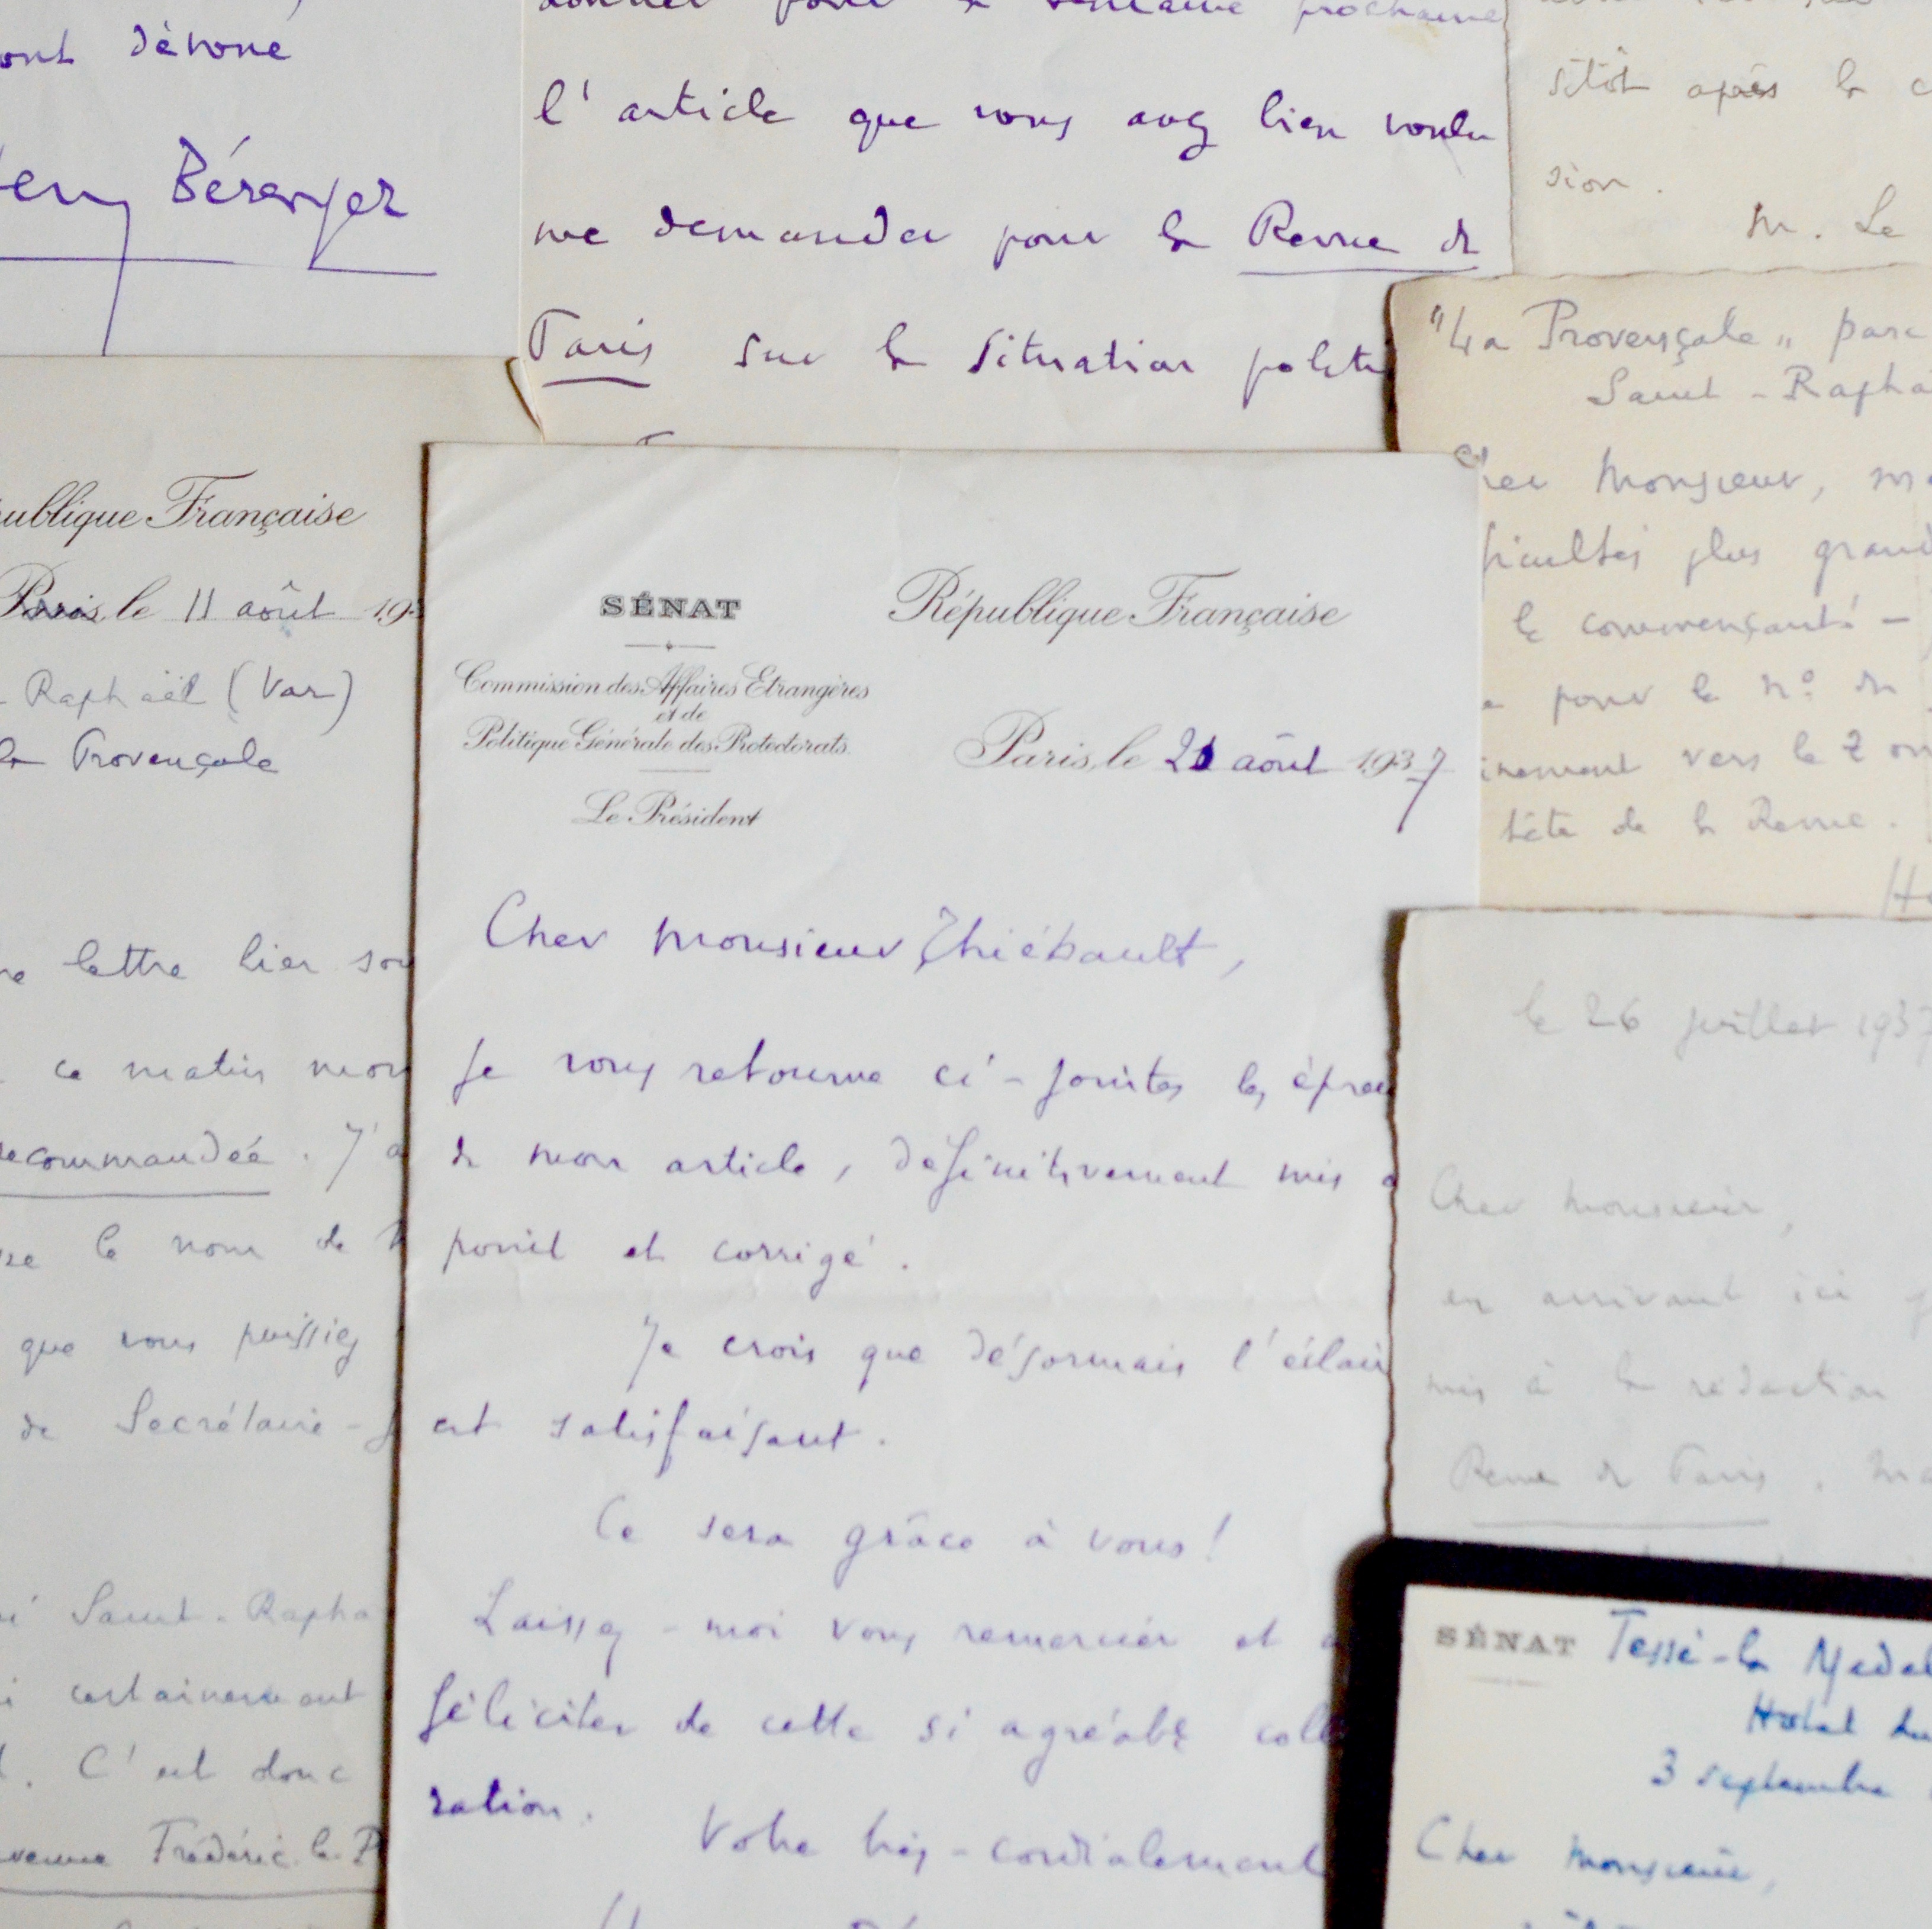 dévoué
Henry Bérenger
semaine prochaine
l'article que vous avez bien voulu
me demander pour la Revue de
Paris sur la situation
sitôt après la
sion.
M. Le
"La Provençale" parc
Saint-Rapha
Cher Monsieur,
ficultés plus grand
le commençant
pour le n° du
vers le 20
tête de la Revue.
ublique Française
Paris, le 11 août 193
Raphaël (Var)
la Provençale
lettre hier soi
ce matin mon
recommandée. J'a
le nom de
que vous puissiez
de Secrétaire-g
Saint-Rapha
certainement
C'est donc
venue Frédéric-le-P
SÉNAT
Commission des Affaires Etrangères
et de
Politique Générale des Protectorats.
Le Président
République Française
Paris, le 21 août 1937
Cher Monsieur Thiébault,
Je vous retourne ci-jointes les épreu
de mon article, définitivement mis a
point et corrigé.
Je crois que désormais l'éclair
est satisfaisant.
Ce sera grâce à vous!
Laissez-moi vous remercier et
féliciter de cette si agréable coll
ration.
Votre très-cordialement
le 26 juillet 1937
Cher Monsieur,
en arrivant ici
mis à la rédaction
Revue de Paris.
SÉNAT Tessé-la Madel
Hôtel du
3 septembre
Cher Monsieur,